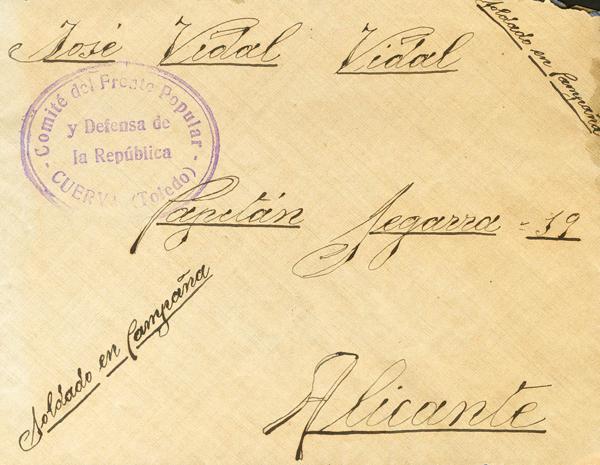 José Vidal Vidal
Soldado en Campaña
Comité del Frente Popular
y Defensa de
la República
CUERVA (Toledo)
Capitán Segarra - 39
Soldado en Campaña
Alicante